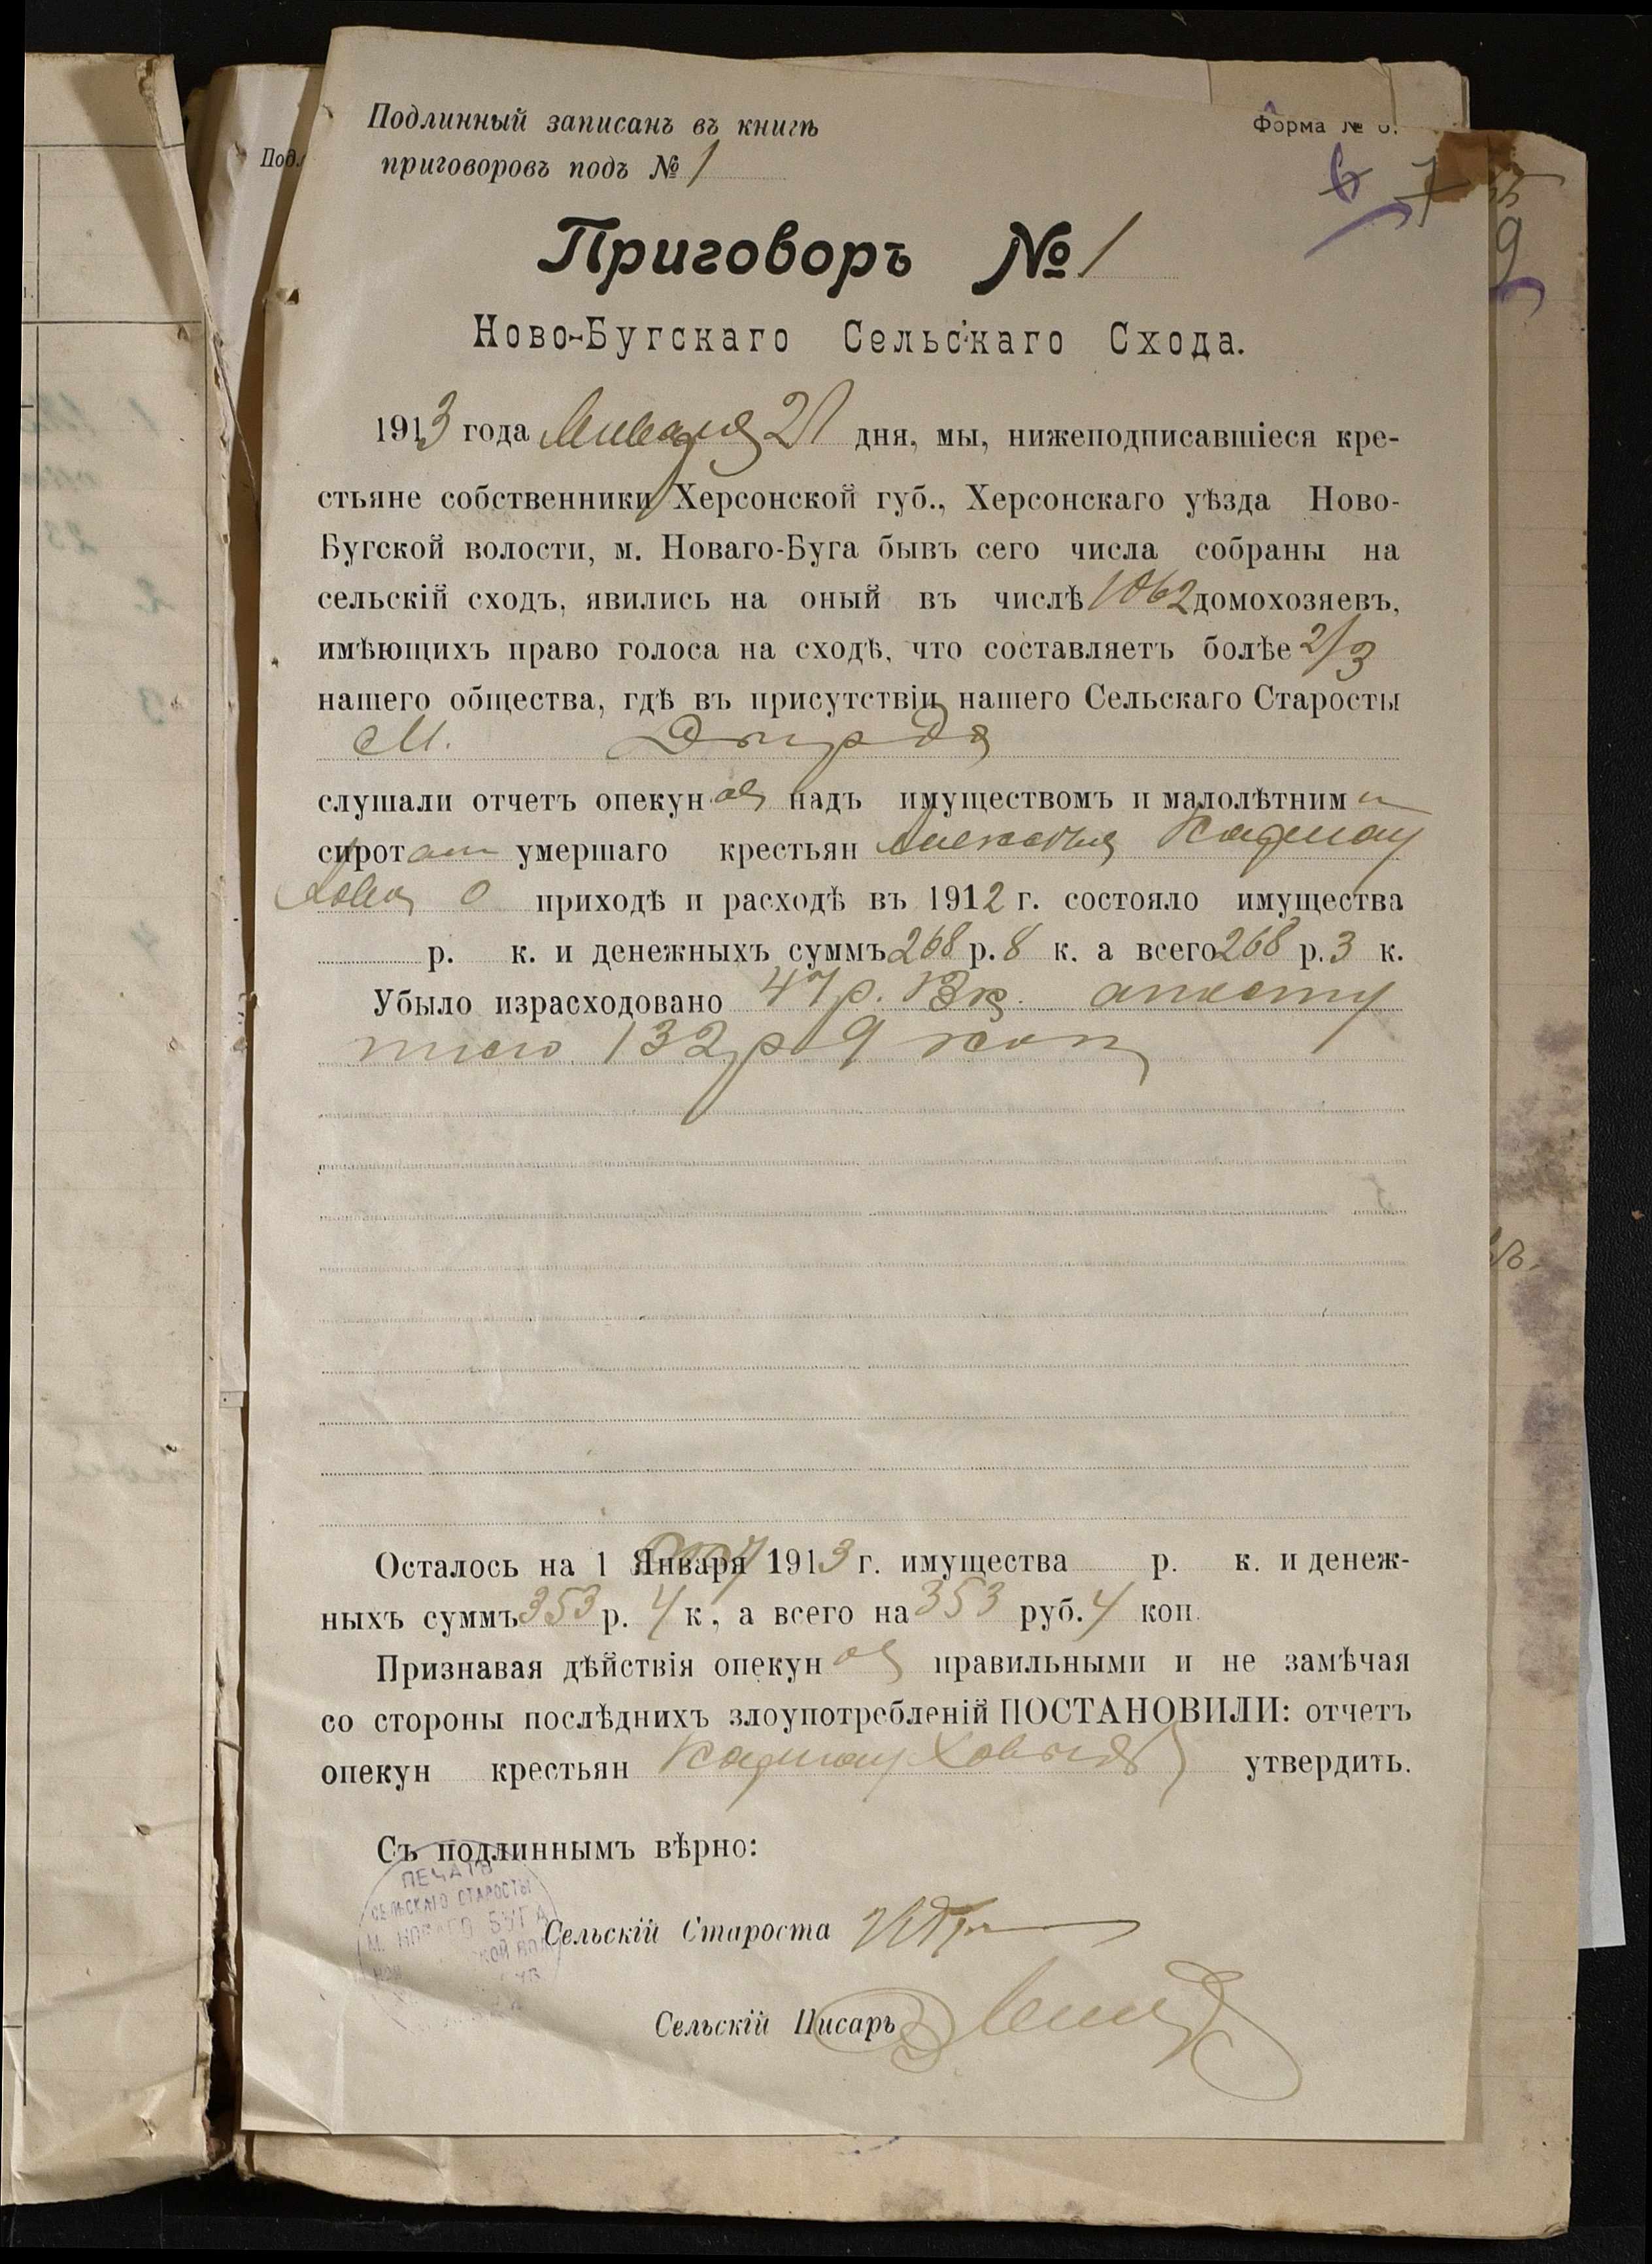 Подлинный записанъ въ книгѣ
Форма №
приговоровъ подъ № 1
6 7
Под.
Приговоръ № 1
Ново-Бугскаго Сельскаго Схода.
1913 года Января 21 дня, мы, нижеподписавшіеся кре-
стьяне собственники Херсонской губ., Херсонскаго уѣзда Ново-
Бугской волости, м. Новаго-Буга бывъ сего числа собраны на
сельскій сходъ, явились на оный въ числѣ 1062 домохозяевъ,
имѣющихъ право голоса на сходѣ, что составляетъ болѣе 2/3
нашего общества, гдѣ въ присутствіи нашего Сельскаго Старосты
М.
слушали отчетъ опекуновъ надъ имуществомъ и малолѣтними
сиротами умершаго крестьян Алексѣя
о приходѣ и расходѣ въ 1912 г. состояло имущества
р. к. и денежныхъ суммъ 268 р. 8 к. а всего 268 р. 3 к.
Убыло израсходовано 47 р. к. а посту
пило 132 р 9 коп
Осталось на 1 Января 1913 г. имущества р. к. и денеж-
ныхъ суммъ 353 р. 4 к, а всего на 353 руб. 4 коп.
Признавая дѣйствія опекуновъ правильными и не замѣчая
со стороны послѣднихъ злоупотребленій ПОСТАНОВИЛИ: отчетъ
опекун крестьян утвердить.
Съ подлиннымъ вѣрно:
ПЕЧАТЬ
СЕЛЬСКАГО СТАРОСТЫ
М. НОВАГО БУГА
Сельскій Староста
Сельскій Писарь